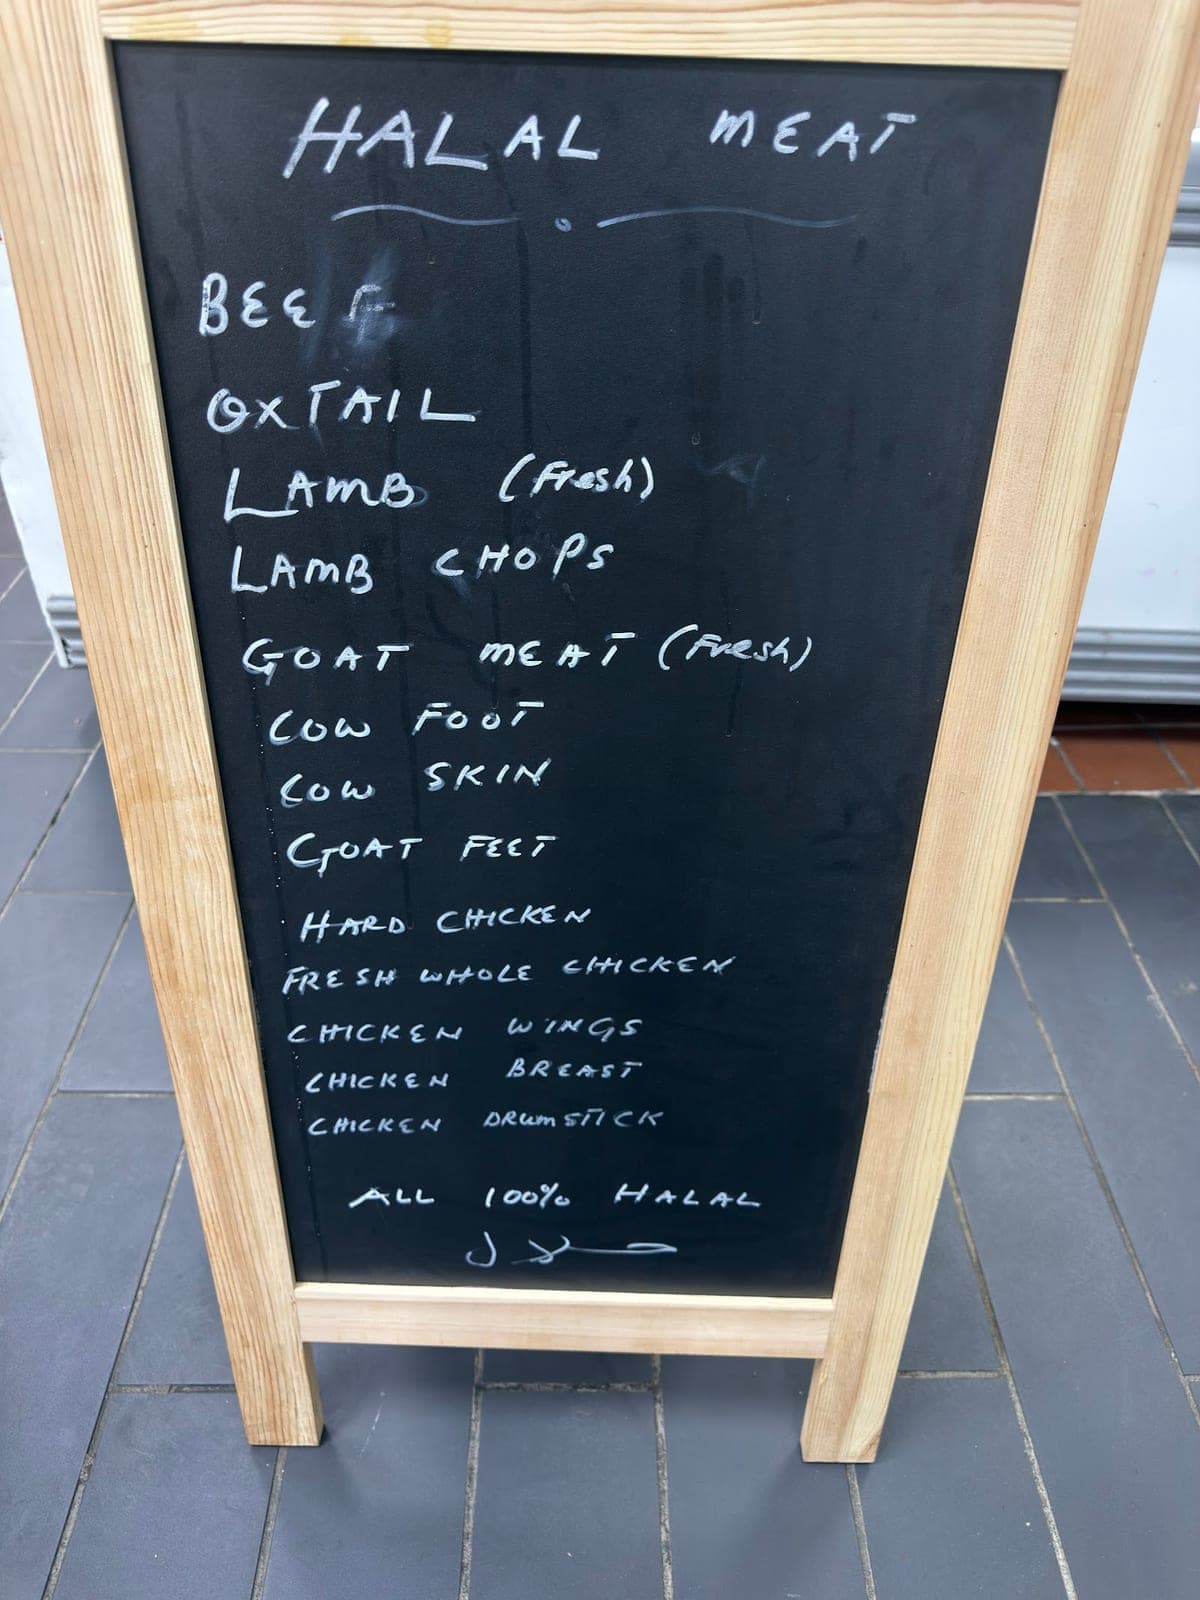 HALAL MEAT
BEEF
OXTAIL
LAMB (Fresh)
LAMB CHOPS
GOAT MEAT (Fresh)
COW FOOT
COW SKIN
GOAT FEET
HARD CHICKEN
FRESH WHOLE CHICKEN
CHICKEN WINGS
CHICKEN BREAST
CHICKEN DRUMSTICK
ALL 100% HALAL
حلال